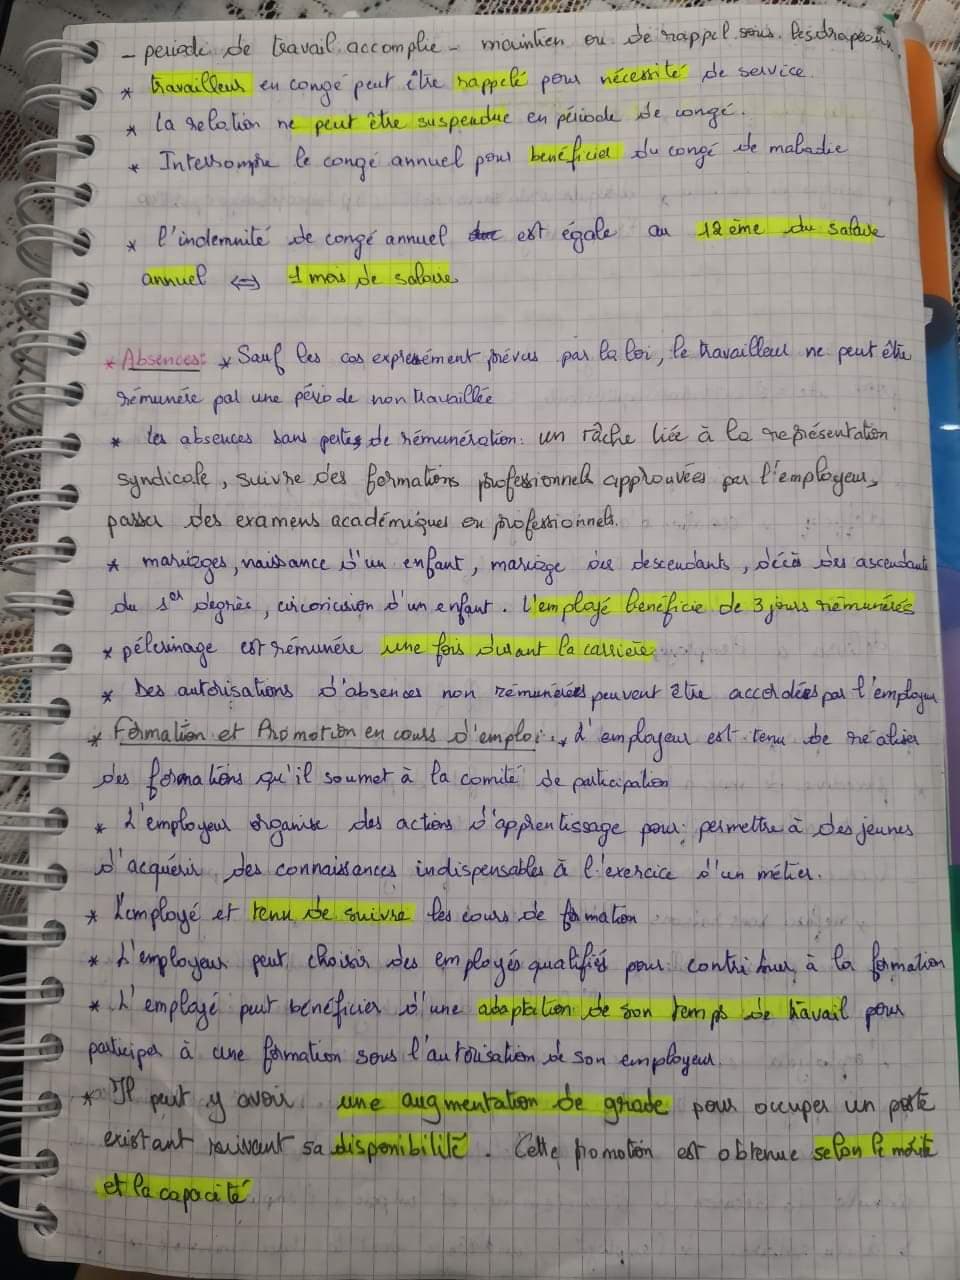 - periode de travail accomplie - maintien ou de rappel sous les drapeaux
* travailleur en congé peut être rappelé pour nécessité de service.
* La relation ne peut être suspendue en période de congé.
* Interrompre le congé annuel pour bénéficier du congé de maladie
* l'indemnité de congé annuel est égale au 12ème du salaire
annuel ⇔ 1 mois de salaire
* Absences: * Sauf les cas expressément prévus par la loi, le travailleur ne peut être
rémunéré par une période non travaillée
* Les absences sans pertes de rémunération: un tâche liée à la représentation
syndicale, suivre des formations professionnels approuvées par l'employeur,
passer des examens académiques ou professionnels.
* mariages, naissance d'un enfant, mariage des descendants, décès des ascendants
du 1er degrès, circoncision d'un enfant. L'employé bénéficie de 3 jours rémunérés
* pélerinage est rémunéré une fois durant la carrière
* Des autorisations d'absences non rémunérées peuvent être accordées par l'employeur
* Formation et Promotion en cours d'emploi: * L'employeur est tenu de réaliser
des formations qu'il soumet à la comité de participation
* L'employeur organise des actions d'apprentissage pour: permettre à des jeunes
d'acquérir des connaissances indispensables à l'exercice d'un métier.
* L'employé et tenu de suivre les cours de formation
* L'employeur peut choisir des employés qualifiés pour contribuer à la formation
* L'employé peut bénéficier d'une adaptation de son temps de travail pour
participer à une formation sous l'autorisation de son employeur.
* Il peut y avoir une augmentation de grade pour occuper un poste
existant suivant sa disponibilité. Cette promotion est obtenue selon le mérite
et la capacité